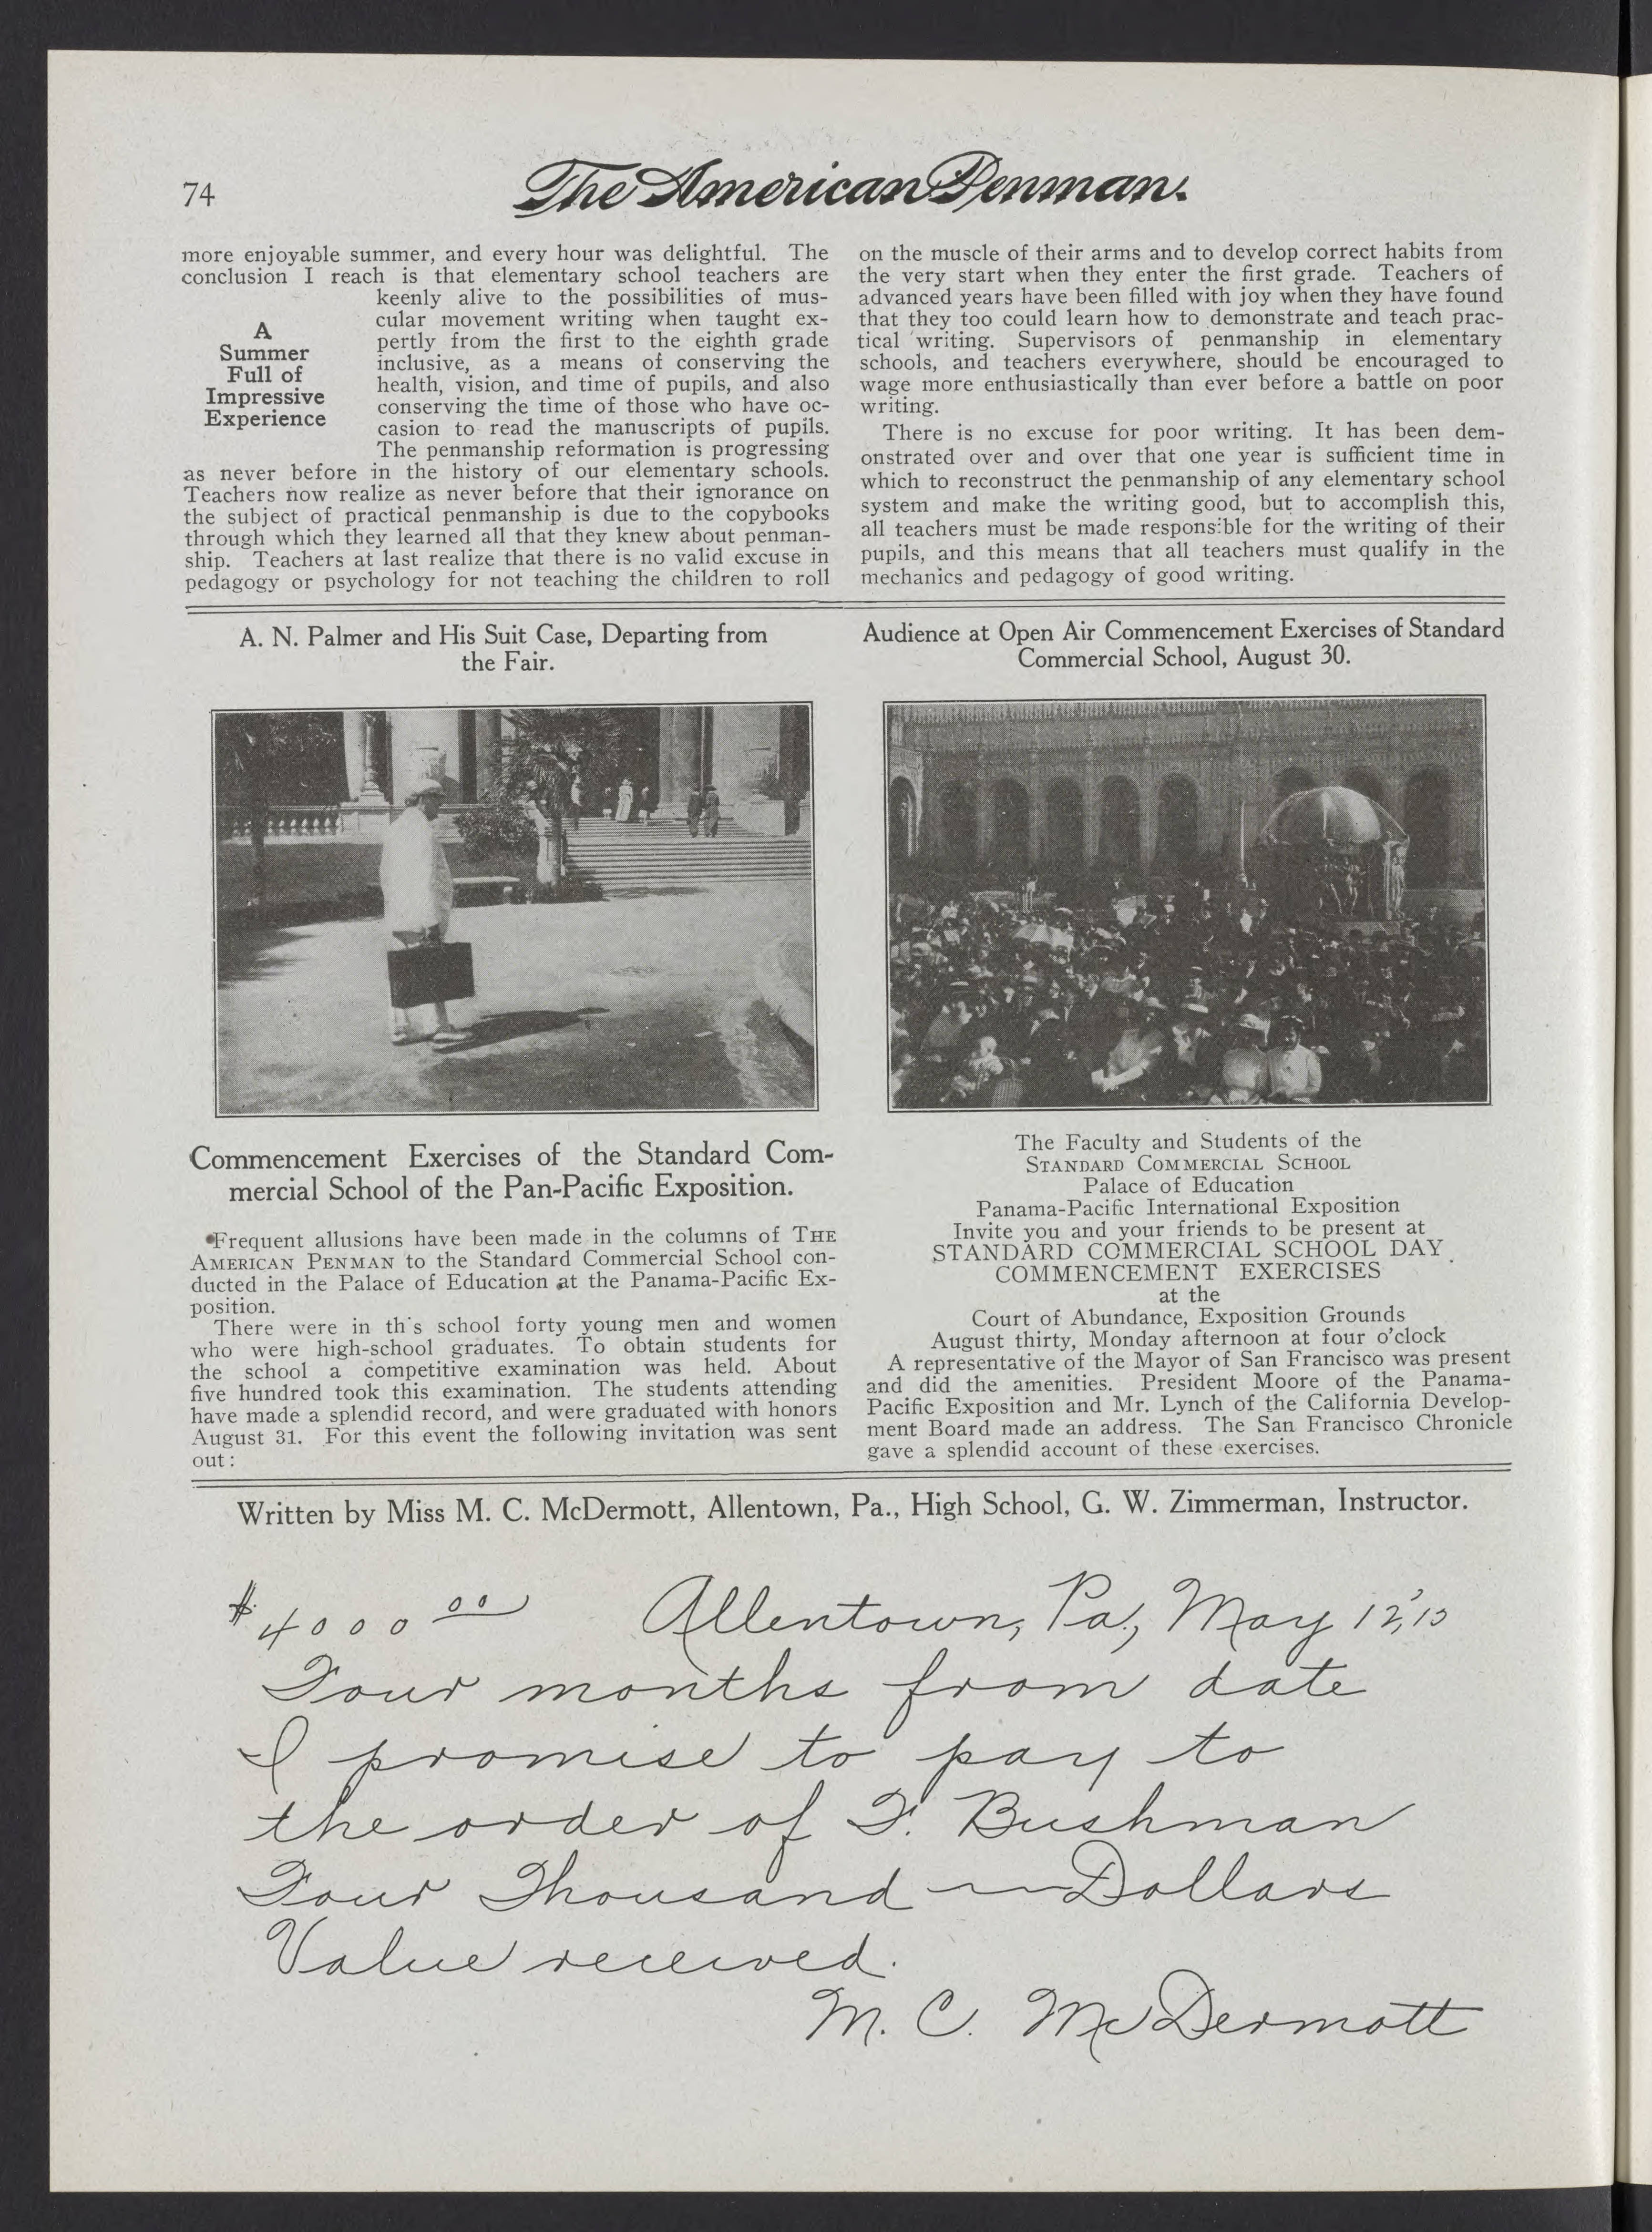 74
The American Penman.
more enjoyable summer, and every hour was delightful. The
conclusion I reach is that elementary school teachers are
keenly alive to the possibilities of mus-
cular movement writing when taught ex-
pertly from the first to the eighth grade
inclusive, as a means of conserving the
health, vision, and time of pupils, and also
conserving the time of those who have oc-
casion to read the manuscripts of pupils.
The penmanship reformation is progressing
A
Summer
Full of
Impressive
Experience
as never before in the history of our elementary schools.
Teachers now realize as never before that their ignorance on
the subject of practical penmanship is due to the copybooks
through which they learned all that they knew about penman-
ship. Teachers at last realize that there is no valid excuse in
pedagogy or psychology for not teaching the children to roll
on the muscle of their arms and to develop correct habits from
the very start when they enter the first grade. Teachers of
advanced years have been filled with joy when they have found
that they too could learn how to demonstrate and teach prac-
tical writing. Supervisors of penmanship in elementary
schools, and teachers everywhere, should be encouraged to
wage more enthusiastically than ever before a battle on poor
writing.
There is no excuse for poor writing. It has been dem-
onstrated over and over that one year is sufficient time in
which to reconstruct the penmanship of any elementary school
system and make the writing good, but to accomplish this,
all teachers must be made responsible for the writing of their
pupils, and this means that all teachers must qualify in the
mechanics and pedagogy of good writing.
A. N. Palmer and His Suit Case, Departing from
the Fair.
Audience at Open Air Commencement Exercises of Standard
Commercial School, August 30.
Commencement Exercises of the Standard Com-
mercial School of the Pan-Pacific Exposition.
Frequent allusions have been made in the columns of THE
AMERICAN PENMAN to the Standard Commercial School con-
ducted in the Palace of Education at the Panama-Pacific Ex-
position.
There were in th's school forty young men and women
who were high-school graduates. To obtain students for
the school a competitive examination was held. About
five hundred took this examination. The students attending
have made a splendid record, and were graduated with honors
August 31. For this event the following invitation was sent
out:
The Faculty and Students of the
STANDARD COMMERCIAL SCHOOL
Palace of Education
Panama-Pacific International Exposition
Invite you and your friends to be present at
STANDARD COMMERCIAL SCHOOL DAY
COMMENCEMENT EXERCISES
at the
Court of Abundance, Exposition Grounds
August thirty, Monday afternoon at four o'clock
A representative of the Mayor of San Francisco was present
and did the amenities. President Moore of the Panama-
Pacific Exposition and Mr. Lynch of the California Develop-
ment Board made an address. The San Francisco Chronicle
gave a splendid account of these exercises.
Written by Miss M. C. McDermott, Allentown, Pa., High School, G. W. Zimmerman, Instructor.
$4000 00 Allentown, Pa., May 12,'15
Four months from date
I promise to pay to
the order of F. Bushman
Four Thousand ~ Dollars
Value received.
M. C. McDermott